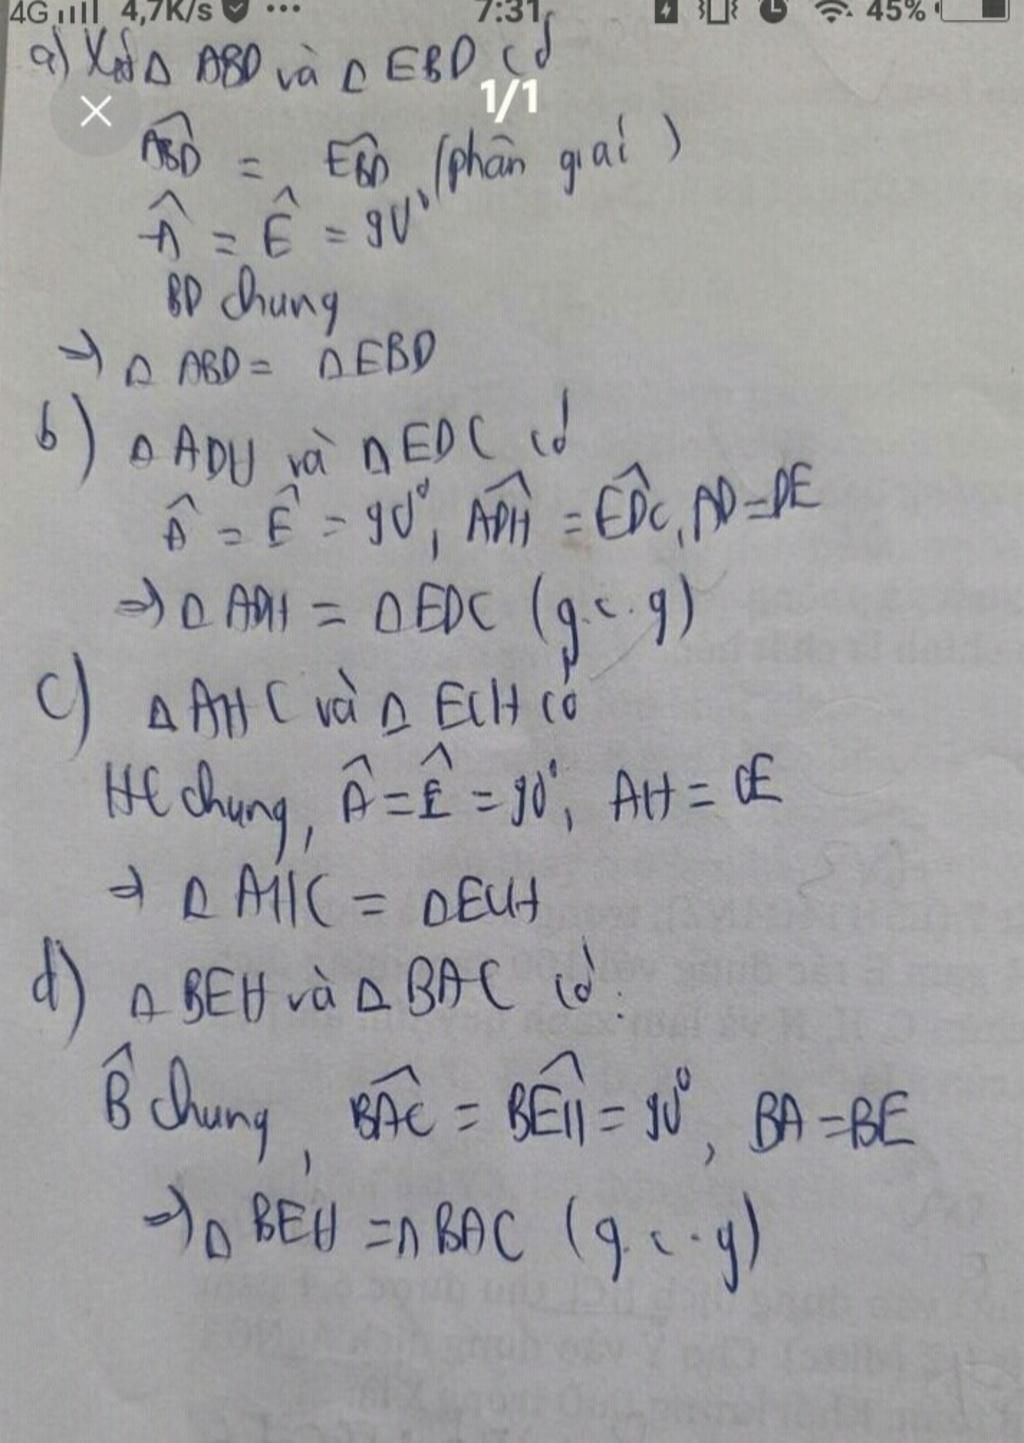 4G 4,7K/s ... 7:31 45%
a) Xét Δ ABD và Δ EBD có
1/1
ABD̂ = EBD̂ (phân giác)
Â = Ê = 90°
BD chung
⇒ Δ ABD = Δ EBD
b) Δ ADH và Δ EDC có
Â = Ê = 90°, ADĤ = EDĈ, AD = DE
⇒ Δ ADH = Δ EDC (g.c.g)
c) Δ AHC và Δ ECH có
HC chung, Â = Ê = 90°, AH = CE
⇒ Δ AHC = Δ ECH
d) Δ BEH và Δ BAC có:
B̂ chung, BAĈ = BEĤ = 90°, BA = BE
⇒ Δ BEH = Δ BAC (g.c.g)